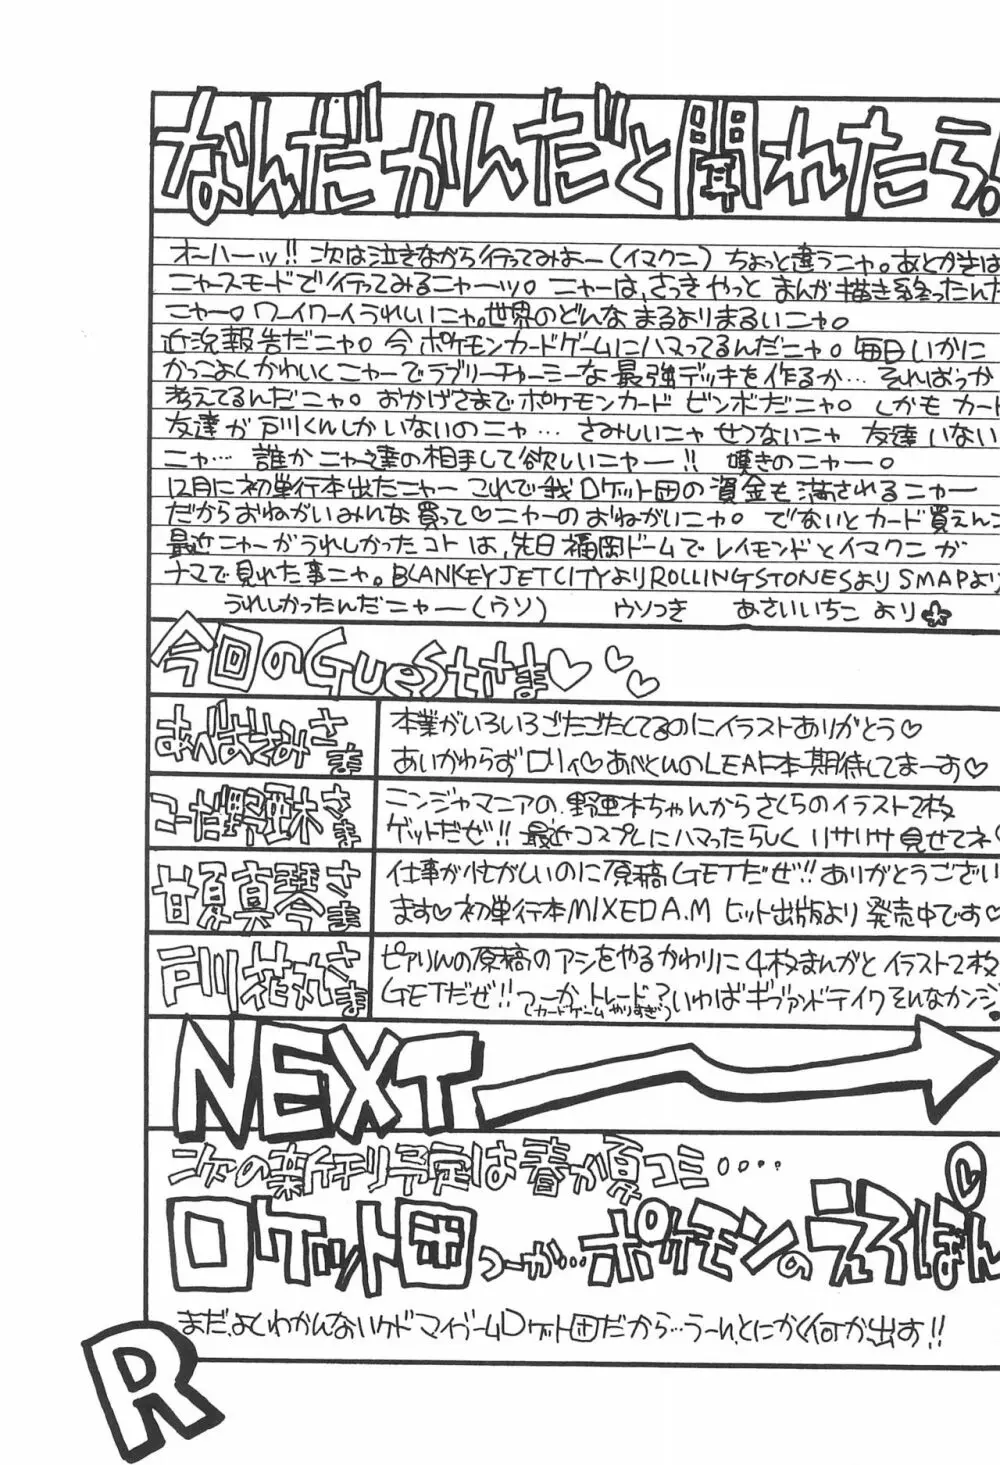 なんだかんだと聞れたら!
オーハーッ!! 次は泣きながら行ってみよー(イマクニ) ちょっと違うニャ。あとがきは
ニャースモードで行ってみるニャーッ。ニャーは、さっき やっと まんが 描き終ったんだ
ニャー。ワーイワーイうれしいニャ。世界のどんな まるよりまるいニャ。
近況報告だニャ。今 ポケモンカードゲームにハマってるんだニャ。毎日いかに
かっこよくかわいくニャーでラブリーチャーミーな 最強デッキを作るか… そればっか
考えてるんだニャ。おかげさまでポケモンカード ビンボだニャ。しかも カード
友達が戸川くんしかいないのニャ… さみしいニャ せつないニャ 友達いない
ニャ… 誰かニャー達の相手して欲しいニャー!! 嘆きのニャー。
12月に初単行本出たニャー これで我ロケット団の資金も満されるニャー
だからおねがいみんな買って♡ニャーのおねがいニャ。でないとカード買えん
最近ニャーがうれしかったコトは、先日福岡ドームでレイモンドとイマクニが
ナマで見れた事ニャ。BLANKEY JET CITYよりROLLING STONESよりSMAPより
うれしかったんだニャー(ウソ) ウソつき あさいいちこ より
今回のGuestさま♡♡♡
あべまさみさま
本業がいろいろごたごたしてるのにイラストありがとう♡
あいかわらずロリィ♡あべくんのLEAF本期待してまーす♡
こーだ野亜木さま
ニンジャマニアの、野亜木ちゃんからさくらのイラスト2枚
ゲットだぜ!! 最近コスプレにハマったらしく リサリサ見せてネ♡
甘夏真琴さま
仕事が忙がしいのに原稿GETだぜ!! ありがとうござい
ます♡初単行本MIXED A.M ヒット出版より 発売中です♡
戸川花丸さま
ピアリんの原稿のアシをやるかわりに4枚まんがとイラスト2枚
GETだぜ!! つーかトレード? いわばギブアンドテイク そんなカンジ
(カードゲームやりすぎ)
NEXT
次の新刊予定は春か夏コミ‥‥
ロケット団つーか…ポケモンのえろほん
まだ、よくわかんないケドマイブームロケット団だから…うーん、とにかく何か出す!!
R